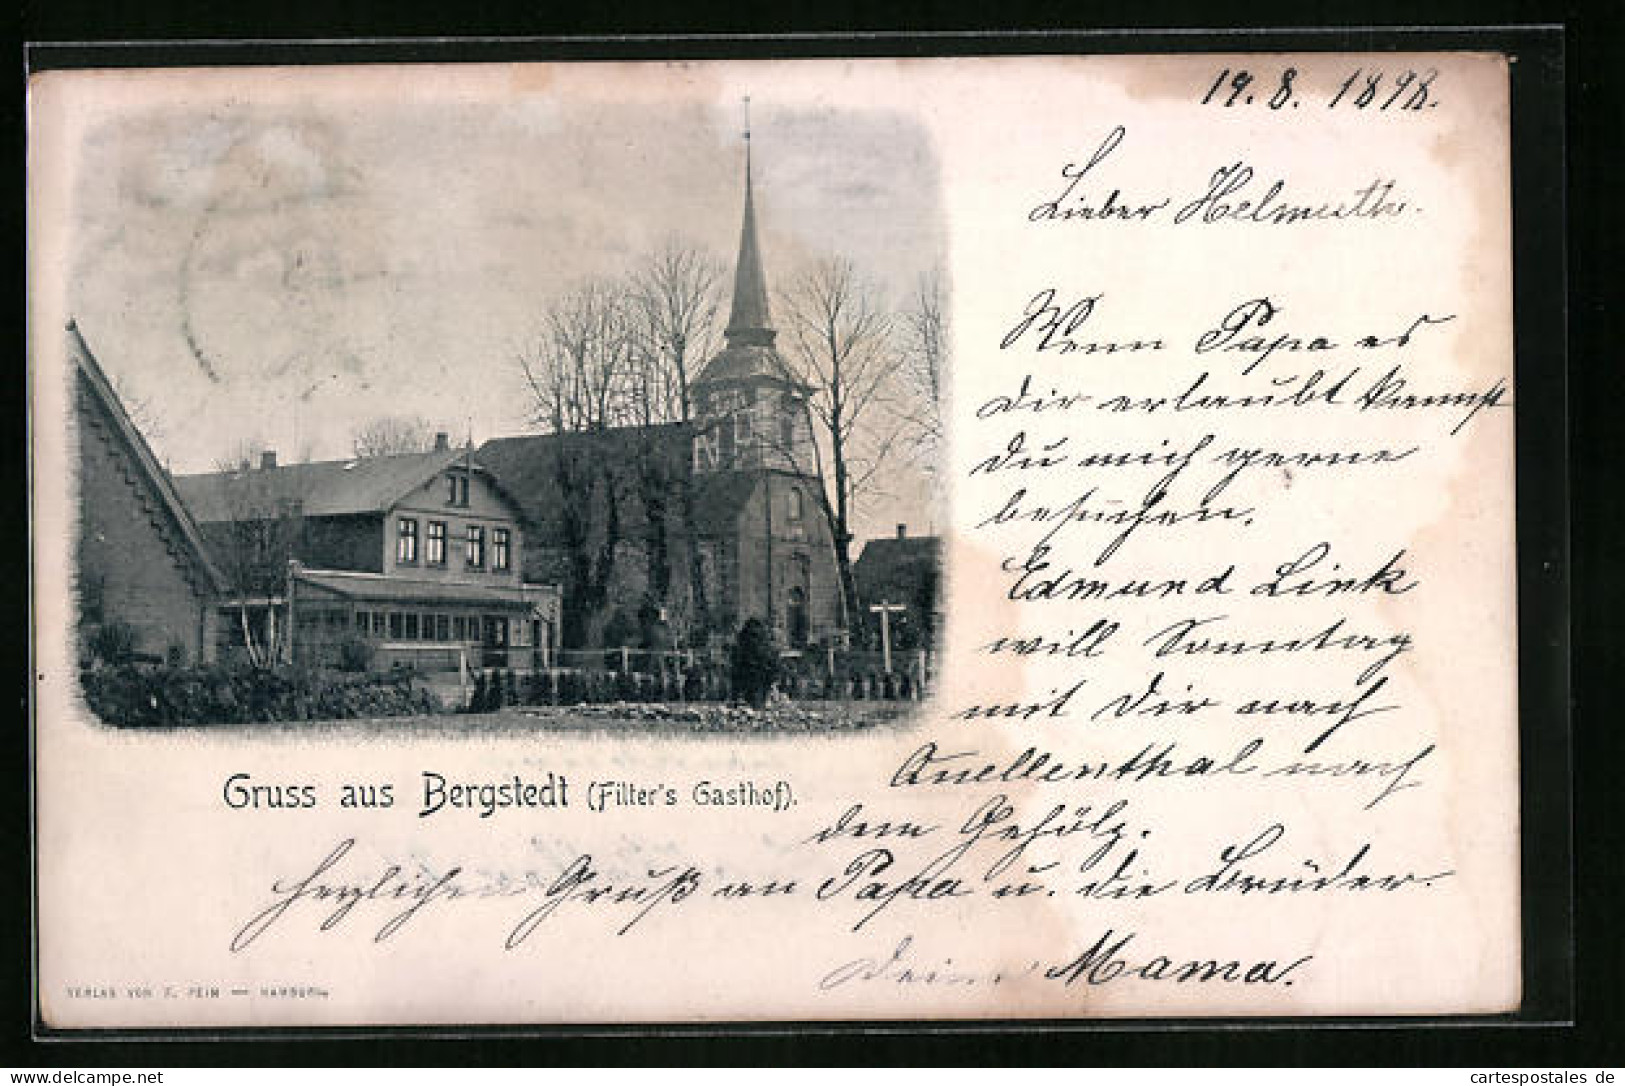 19. 8. 1898.
Lieber Helmuth.
Wenn Papa es
Dir erlaubt kannst
Du mich gerne
besuchen.
Edmund Link
will Sonntag
mit Dir nach
Quellenthal nach
dem Gehölz.
Herzlichen Gruß an Papa u. die Brüder.
Deine Mama.
Gruss aus Bergstedt (Filter's Gasthof).
VERLAG VON F. PEIM — HAMBURG
www.cartespostales.eu
cartespostales de